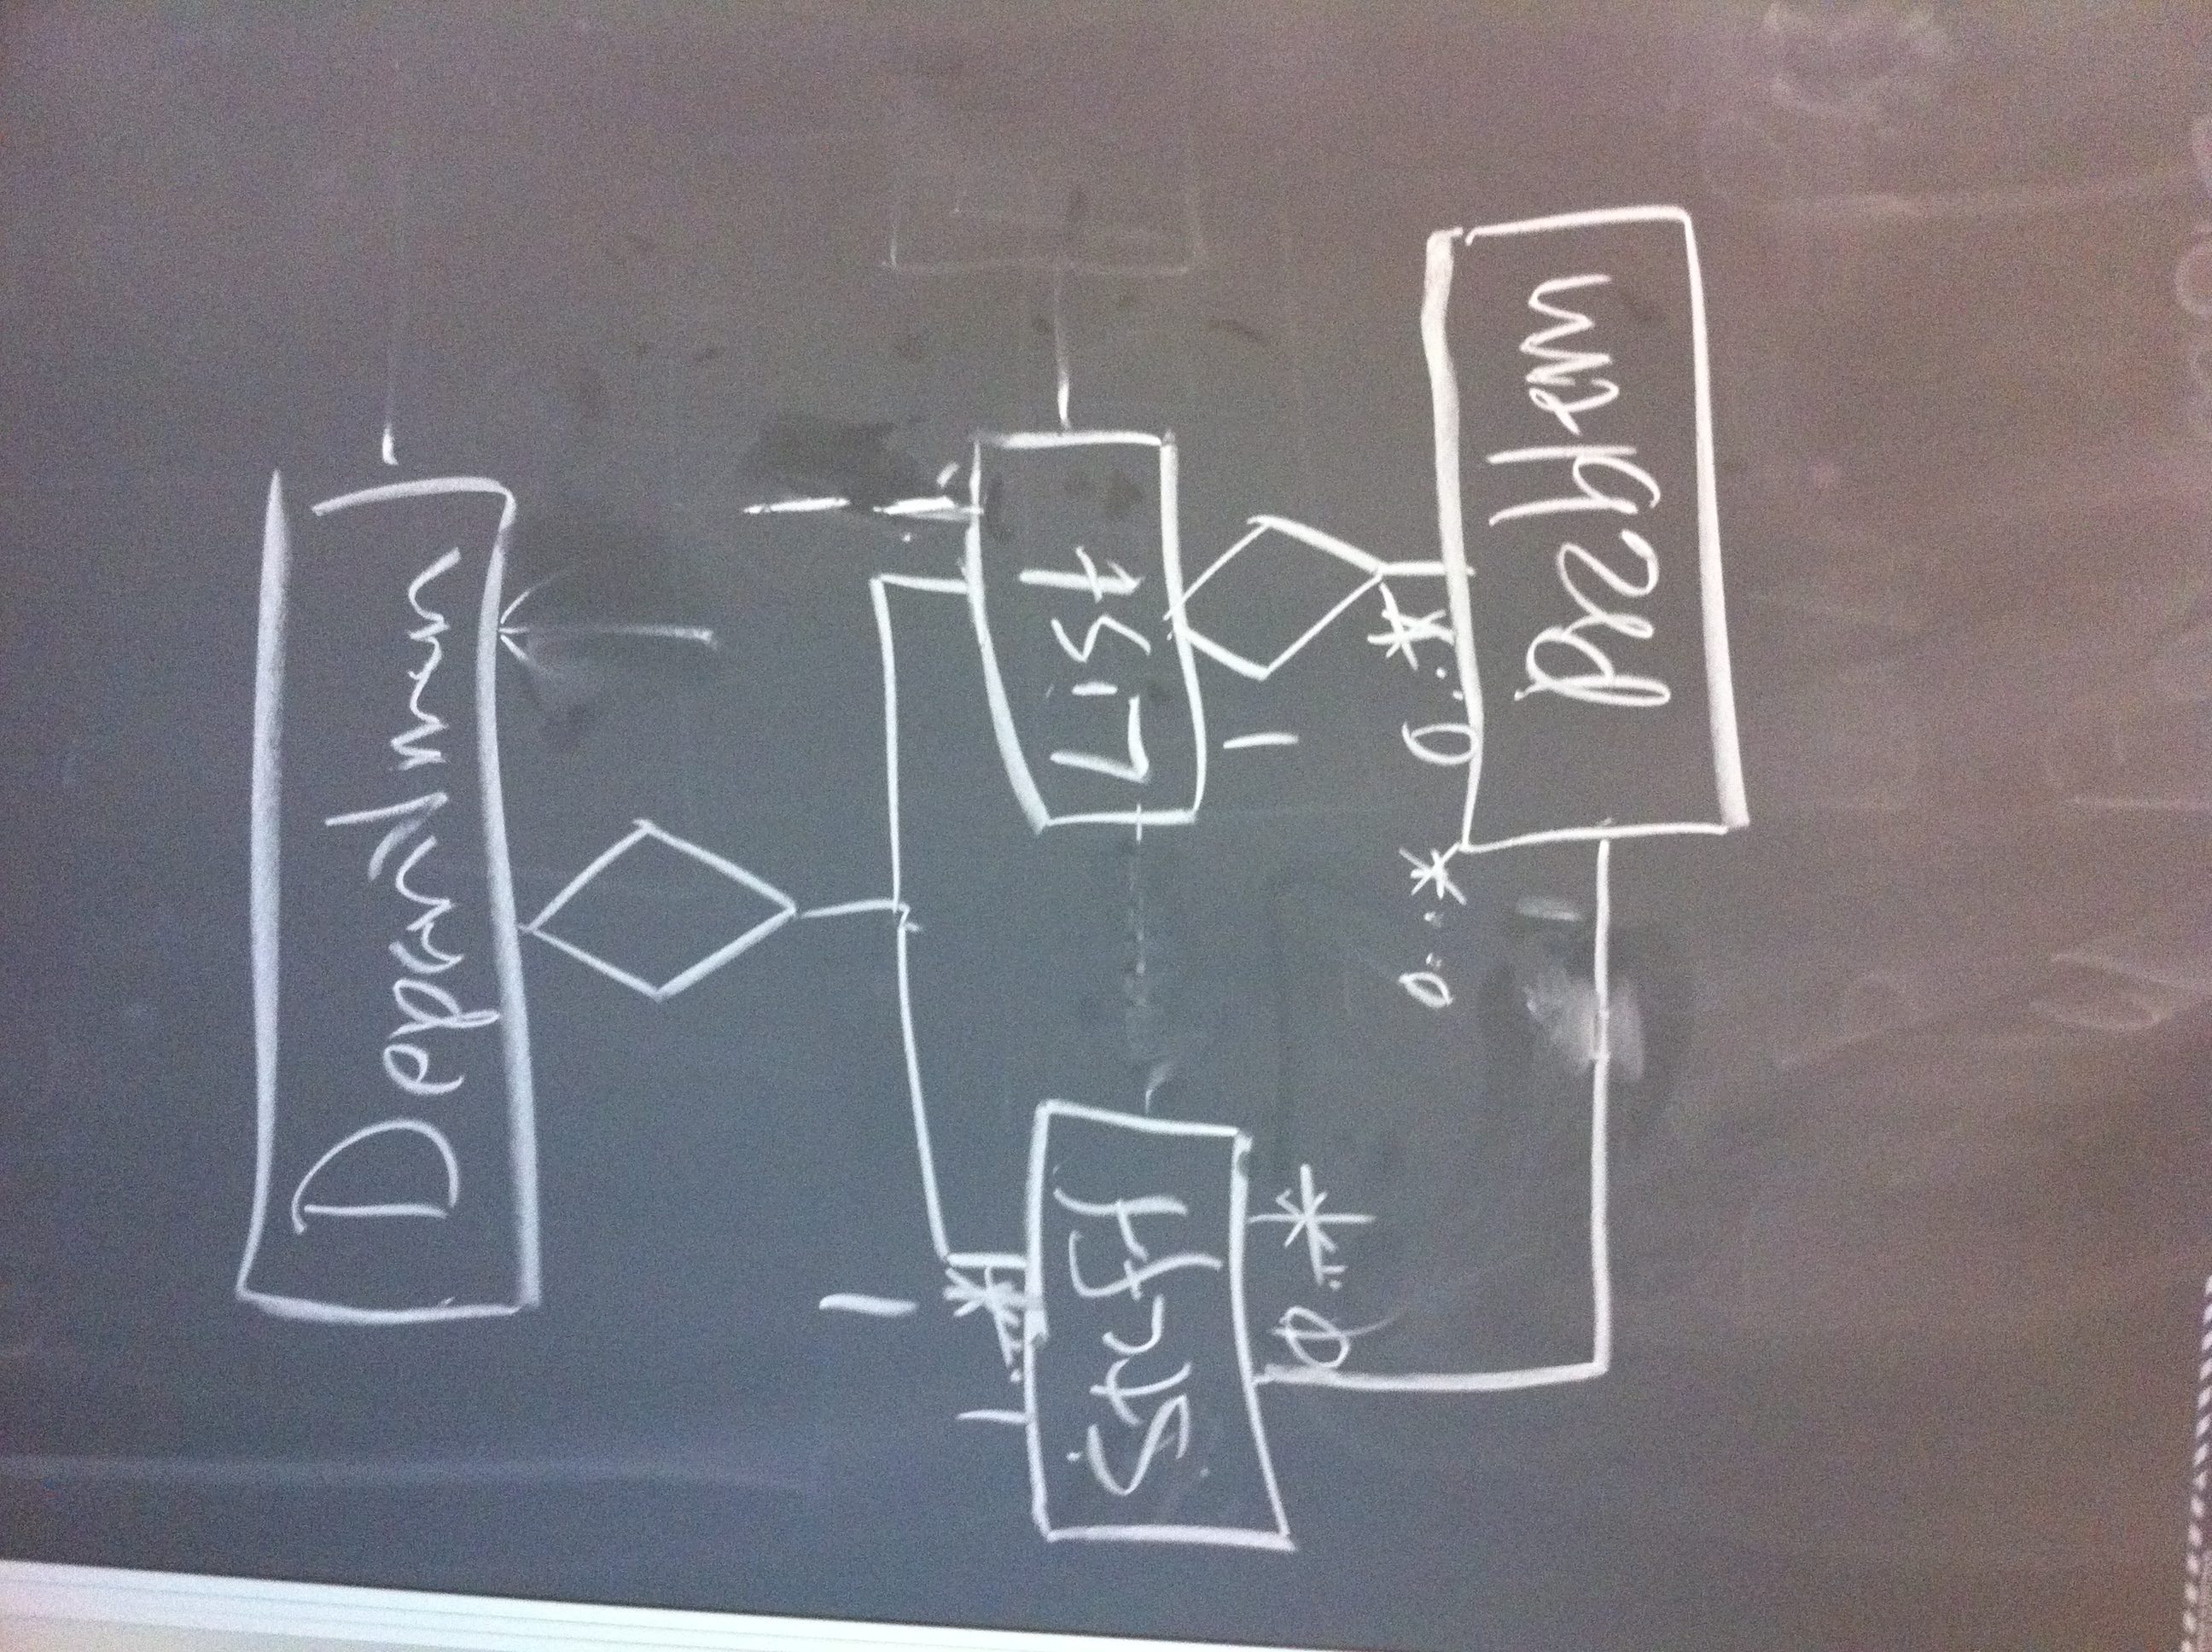 Departmen
1
1
1..*
Staff
List
0..*
1
0..*
0..*
Problem